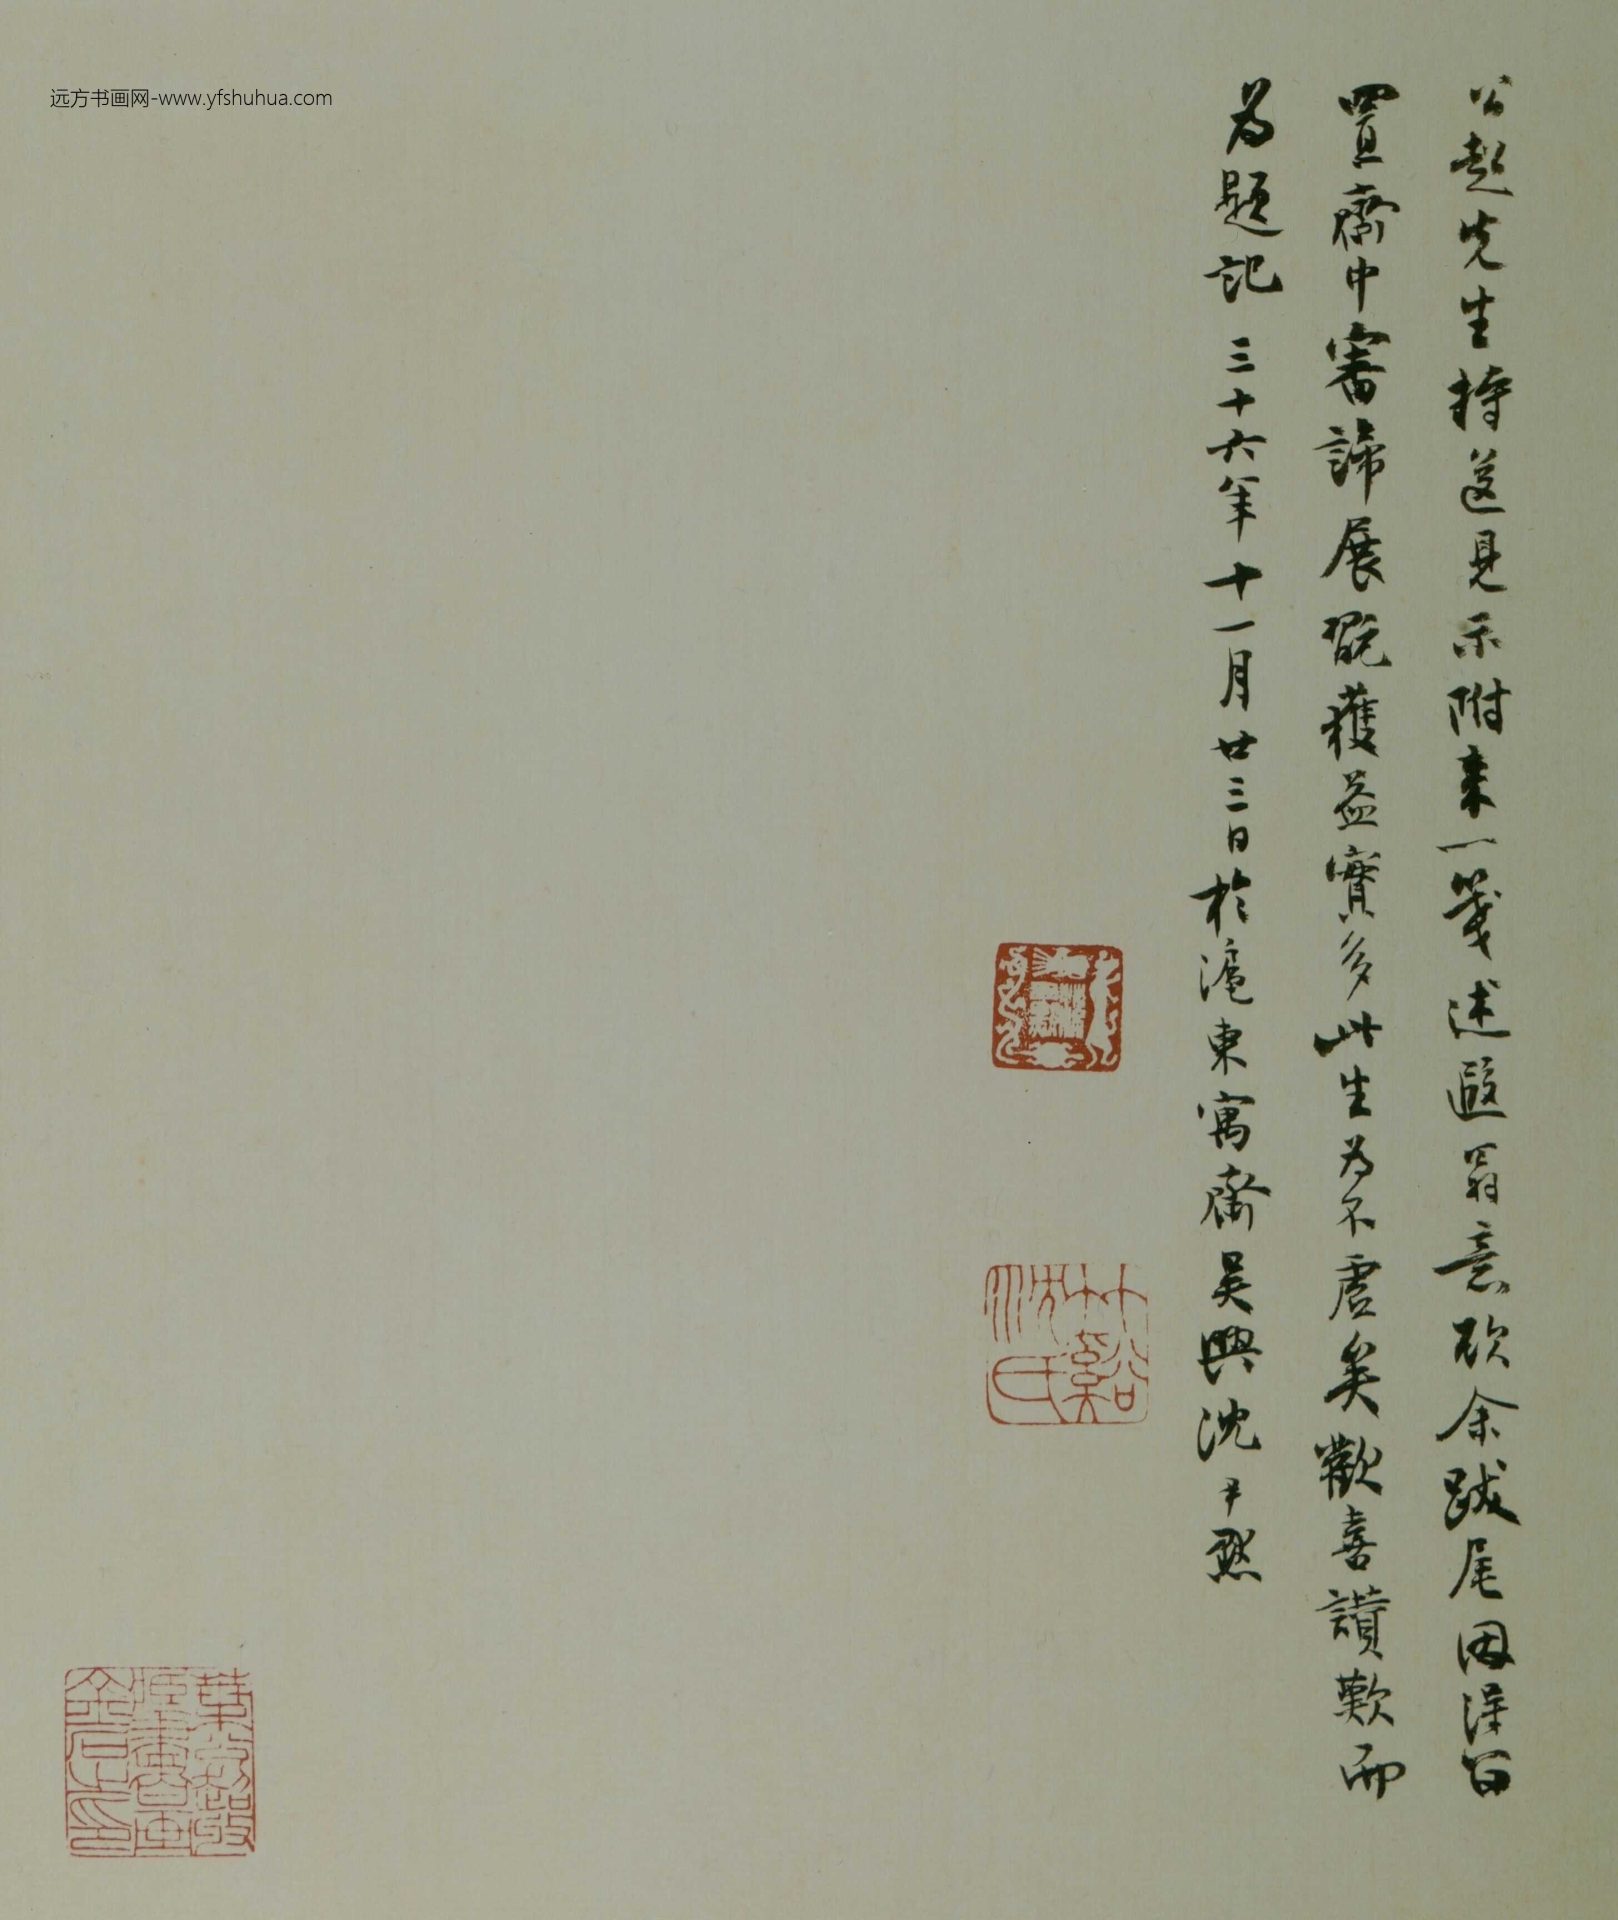 远方书画网-www.yfshuhua.com
公起先生持送見示附来一箋述遐翁意欲余跋尾因得留
置齋中審諦展翫獲益實多此生為不虛矣歡喜讃歎而
為題記 三十六年十一月廿三日於滬東寓齋吳興沈尹默
竹谿沈氏